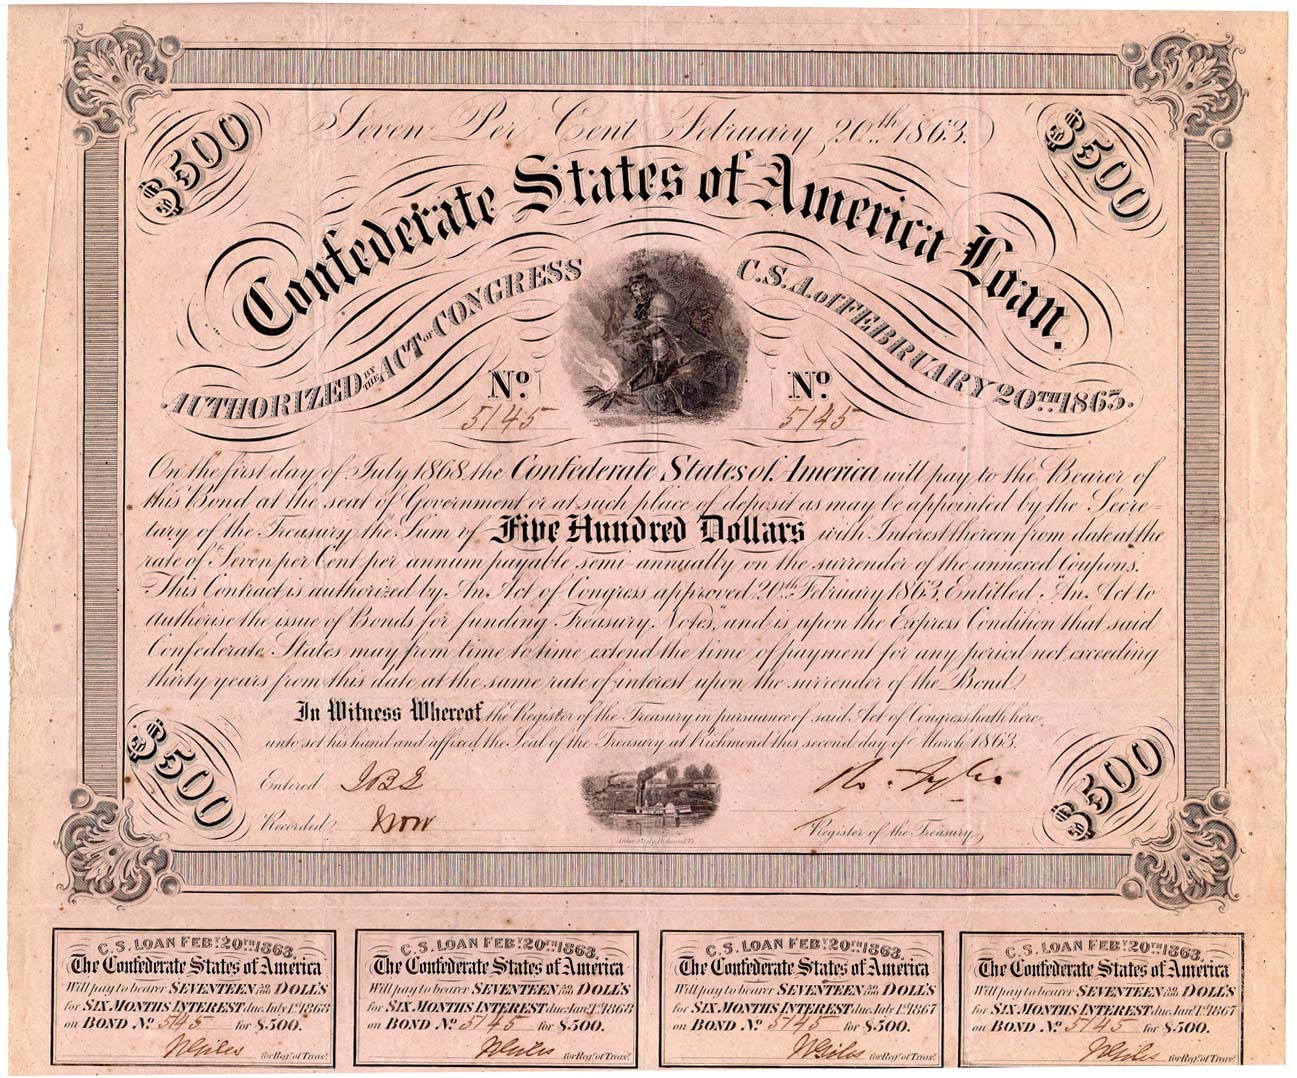 Seven Per Cent February 20th 1863.
$500
$500
Confederate States of America Loan.
AUTHORIZED BY THE ACT OF CONGRESS
C.S.A. of FEBRUARY 20TH 1863.
No. 5145
No. 5145
On the first day of July 1868 the Confederate States of America will pay to the Bearer of
this Bond at the seat of Government or at such place of deposit as may be appointed by the Secre-
tary of the Treasury the Sum of Five Hundred Dollars with Interest thereon from date at the
rate of Seven per Cent per annum payable semi-annually on the surrender of the annexed Coupons.
This Contract is authorized by An Act of Congress, approved 20th February 1863, Entitled "An Act to
authorise the issue of Bonds for funding Treasury Notes," and is upon the Express Condition that said
Confederate States may from time to time extend the time of payment for any period not exceeding
thirty years from this date at the same rate of interest upon the surrender of the Bond.
In Witness Whereof the Register of the Treasury in pursuance of said Act of Congress hath here-
unto set his hand and affixed the Seal of the Treasury at Richmond this second day of March 1863.
$500
$500
Entered
Ro. Tyler
Recorded
Register of the Treasury
C.S. LOAN FEBY. 20TH 1863.
The Confederate States of America
Will pay to bearer SEVENTEEN 50/100 DOLL'S
for SIX MONTHS INTEREST due July 1st 1868
on BOND No. 5145 for $500.
for Regr. of Treasy.
C.S. LOAN FEBY. 20TH 1863.
The Confederate States of America
Will pay to bearer SEVENTEEN 50/100 DOLL'S
for SIX MONTHS INTEREST due Jany. 1st 1868
on BOND No. 5145 for $500.
for Regr. of Treasy.
C.S. LOAN FEBY. 20TH 1863.
The Confederate States of America
Will pay to bearer SEVENTEEN 50/100 DOLL'S
for SIX MONTHS INTEREST due July 1st 1867
on BOND No. 5145 for $500.
for Regr. of Treasy.
C.S. LOAN FEBY. 20TH 1863.
The Confederate States of America
Will pay to bearer SEVENTEEN 50/100 DOLL'S
for SIX MONTHS INTEREST due Jany. 1st 1867
on BOND No. 5145 for $500.
for Regr. of Treasy.